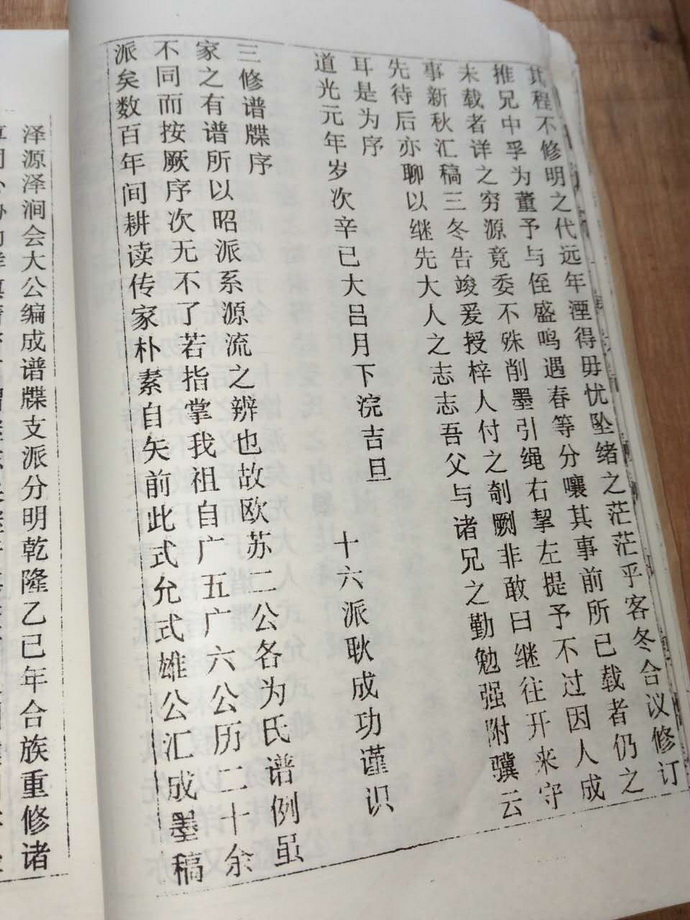 其程不修明之代远年湮得毋忧坠绪之茫茫乎客冬合议修订
推兄中孚为董予与侄盛鸣遇春等分嚷其事前所已载者仍之
未载者详之穷源竟委不殊削墨引绳右挈左提予不过因人成
事新秋汇稿三冬告竣爰授梓人付之剞劂非敢曰继往开来守
先待后亦聊以继先大人之志志吾父与诸兄之勤勉强附骥云
耳是为序
道光元年岁次辛巳大吕月下浣吉旦 十六派耿成功谨识
三修谱牒序
家之有谱所以昭派系源流之辨也故欧苏二公各为氏谱例虽
不同而按厥序次无不了若指掌我祖自广五广六公历二十余
派矣数百年间耕读传家朴素自矢前此式允式雄公汇成墨稿
泽源泽涧会大公编成谱牒支派分明乾隆乙巳年合族重修诸